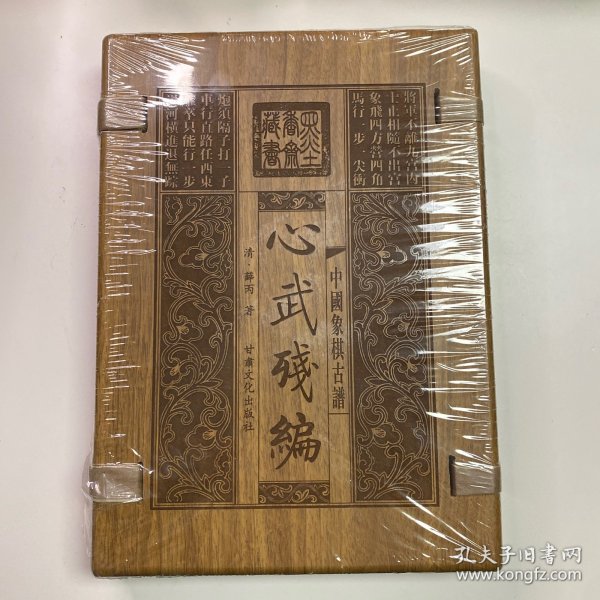 將軍不離九宮內
士止相隨不出宮
象飛四方營四角
馬行一步一尖衝
炮須隔子打一子
車行直路任西東
卒只能行一步
河橫進退無踪
藏書
中國象棋古譜
心武殘編
清·薛丙 著
甘肅文化出版社
孔夫子旧書网
www.kongfz.com